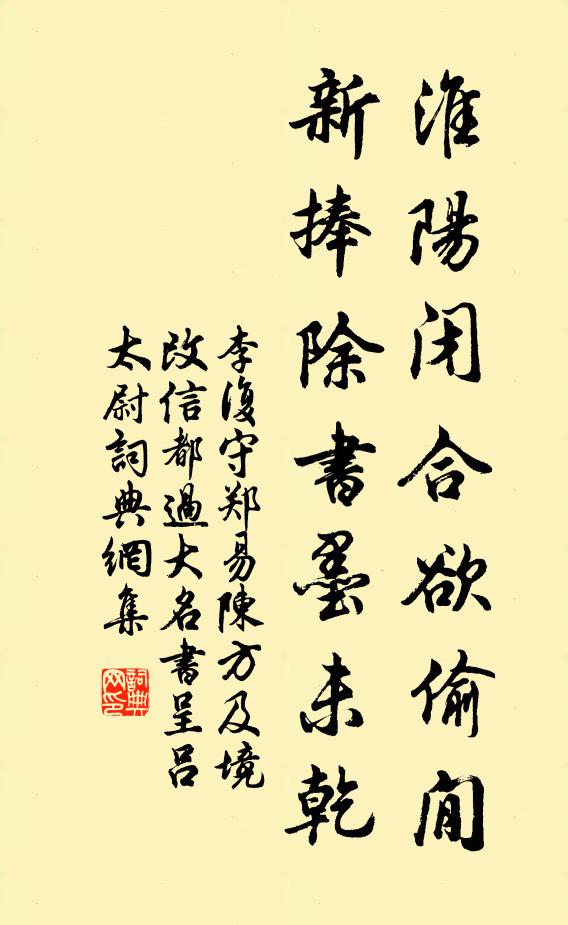 淮陽闭合欲偷閒
新捧除書墨未乾
李復守郑易陳方及境
改信都過大名書呈吕
太尉詞典網集
詞典
网印